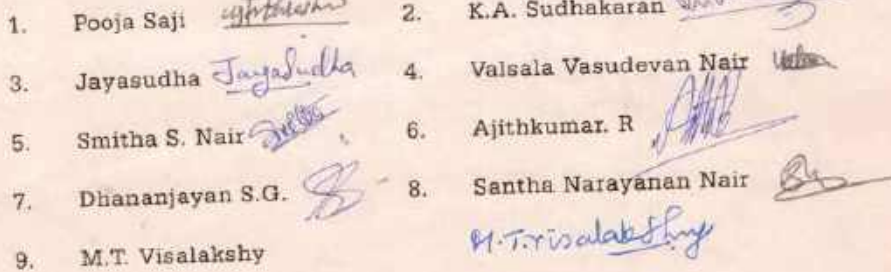 1. Pooja Saji 2. K.A. Sudhakaran
3. Jayasudha Jayasudha 4. Valsala Vasudevan Nair
5. Smitha S. Nair 6. Ajithkumar. R
7. Dhananjayan S.G. 8. Santha Narayanan Nair
9. M.T. Visalakshy M.T. Visalakshy